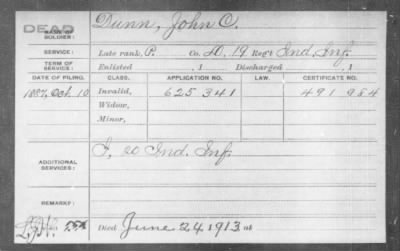 DEAD
NAME OF SOLDIER: Dunn, John C.
SERVICE: Late rank, P. Co. D, 19 Reg't Ind. Inf.
TERM OF SERVICE: Enlisted , 1 Discharged , 1
DATE OF FILING. CLASS. APPLICATION NO. LAW. CERTIFICATE NO.
1887, Oct. 10 Invalid, 625 341 491 954
Widow,
Minor,
ADDITIONAL SERVICES: I, 20 Ind. Inf.
REMARKS:
Died June 24 1913, at